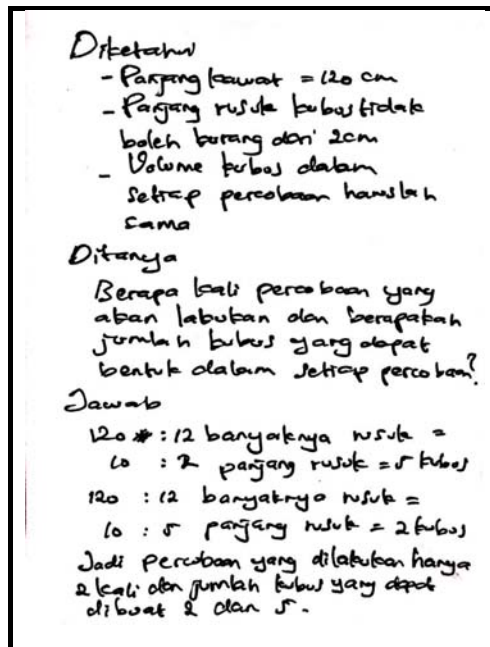 Diketahui
- Panjang kawat = 120 cm
- Panjang rusuk kubus tidak
boleh kurang dari 2cm
- Volume kubus dalam
setiap percobaan haruslah
sama
Ditanya
Berapa kali percobaan yang
akan lakukan dan berapakah
jumlah kubus yang dapat
bentuk dalam setiap percobaan?
Jawab
120 : 12 banyaknya rusuk =
10 : 2 panjang rusuk = 5 kubus
120 : 12 banyaknya rusuk =
10 : 5 panjang rusuk = 2 kubus
Jadi percobaan yang dilakukan hanya
2 kali dan jumlah kubus yang dapat
dibuat 2 dan 5.